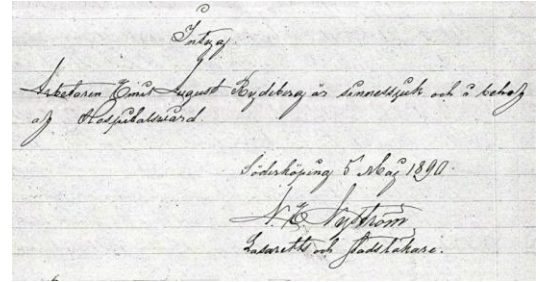 Intyg.
Arbetaren Ernst August Rydeberg är sinnessjuk och i behof
af Hospitalsvård.
Söderköping 5 Maj 1890.
N. E. Nyström
Lasaretts och Stadsläkare.